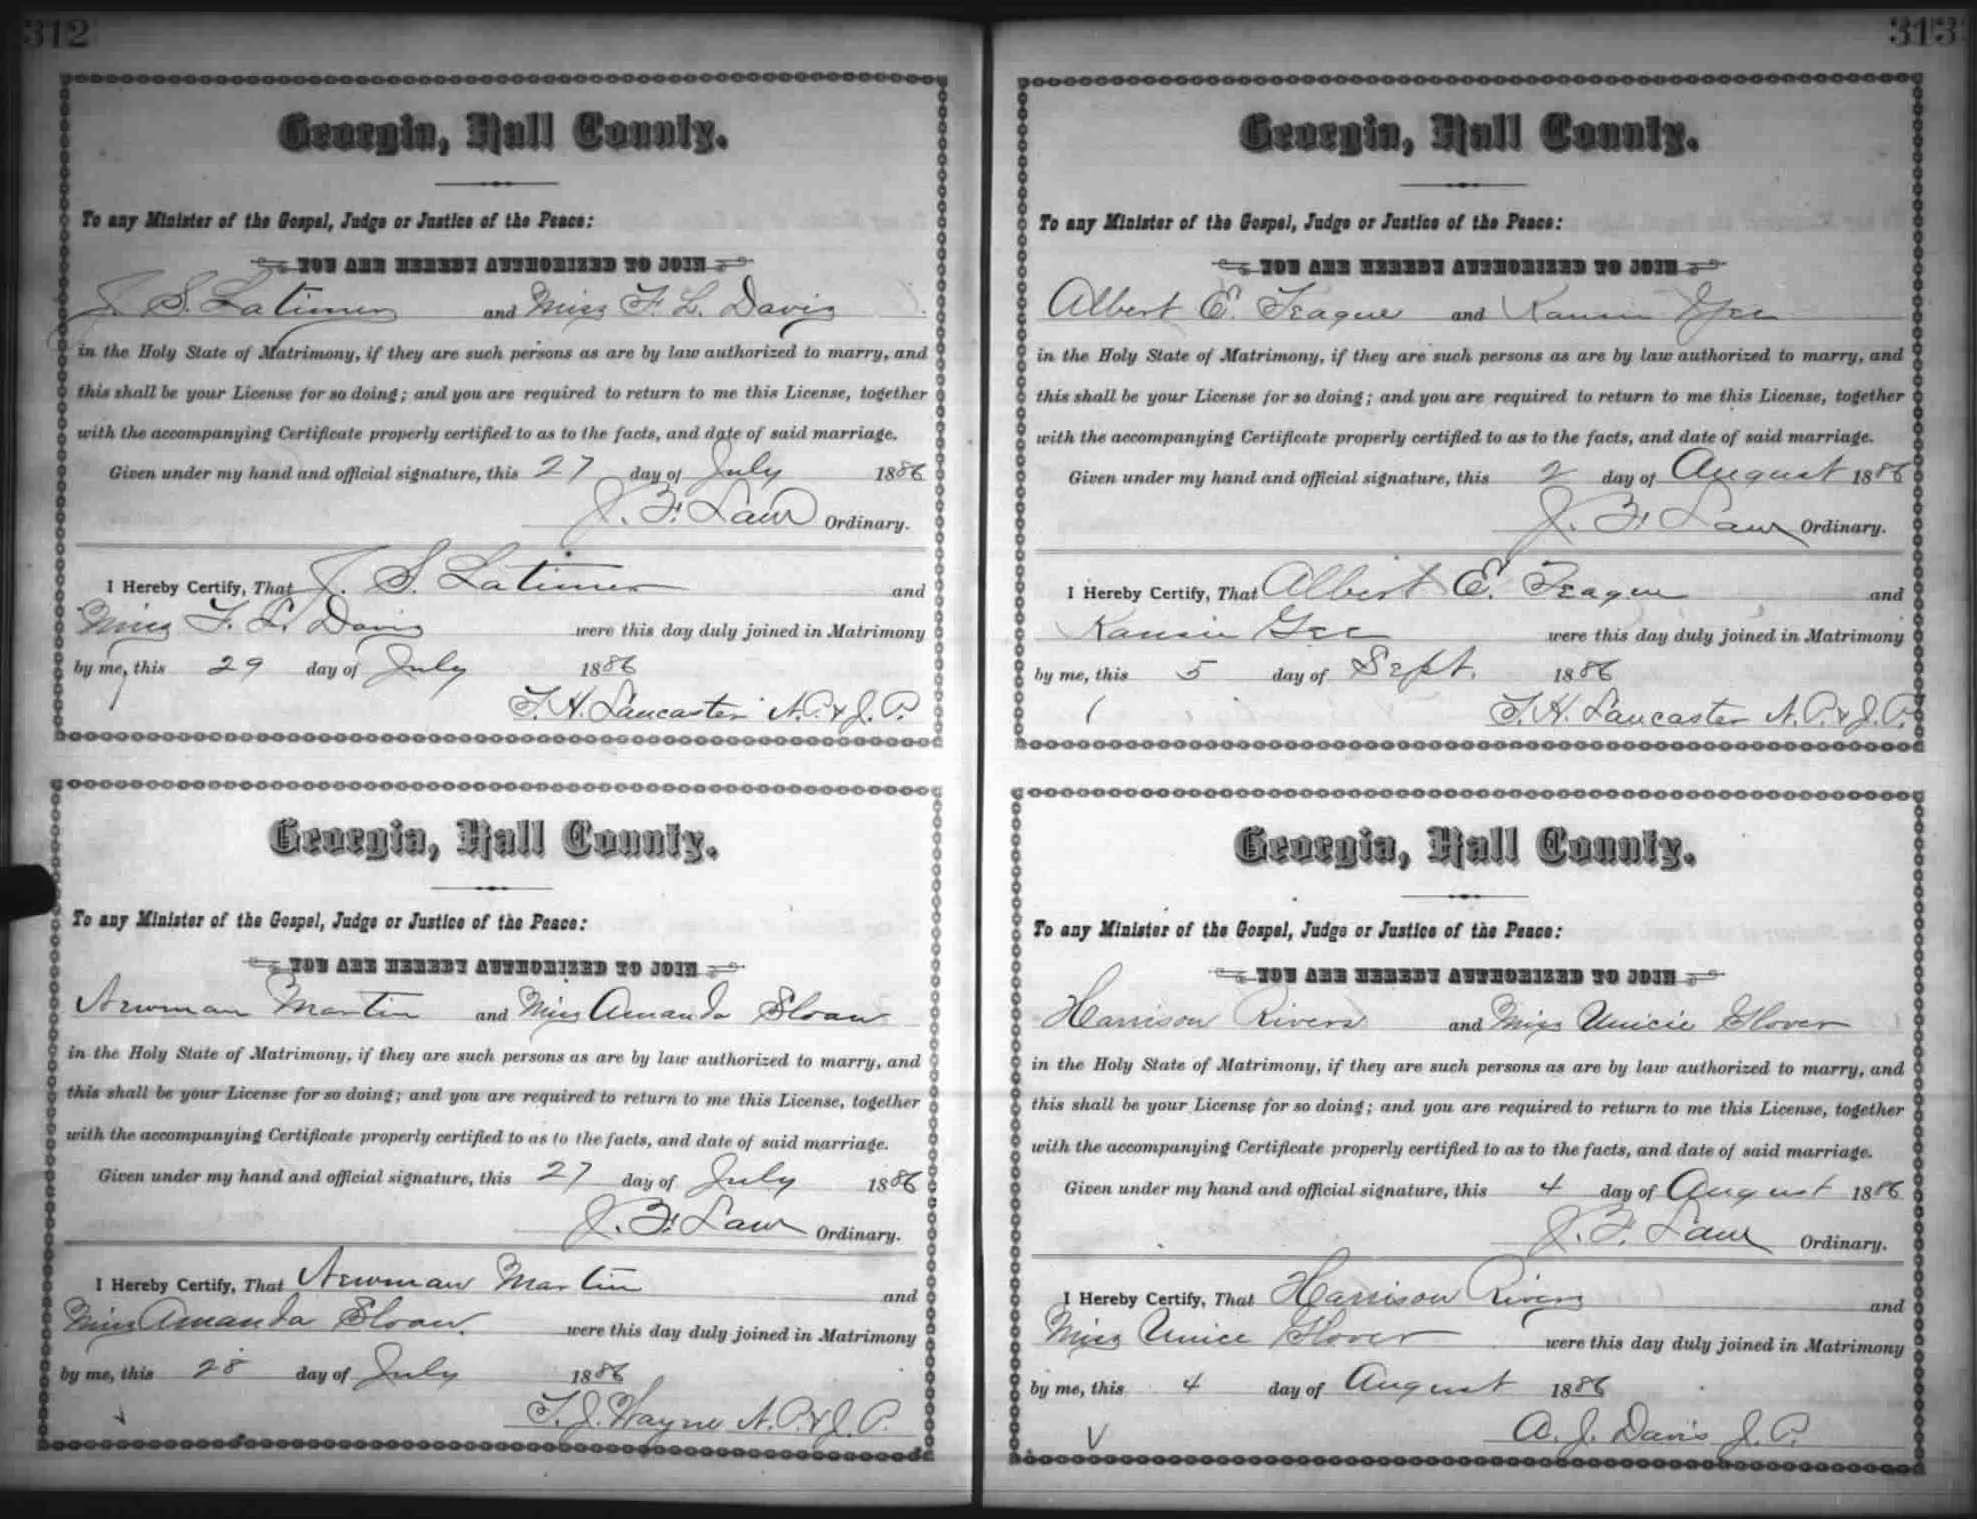 312
Georgia, Hall County.
To any Minister of the Gospel, Judge or Justice of the Peace:
YOU ARE HEREBY AUTHORIZED TO JOIN
J. S. Latimer and Miss F. L. Davis
in the Holy State of Matrimony, if they are such persons as are by law authorized to marry, and
this shall be your License for so doing; and you are required to return to me this License, together
with the accompanying Certificate properly certified to as to the facts, and date of said marriage.
Given under my hand and official signature, this 27 day of July 1886
J. F. Law Ordinary.
I Hereby Certify, That J. S. Latimer and
Miss F. L. Davis were this day duly joined in Matrimony
by me, this 29 day of July 1886
T. H. Lancaster N. P. & J. P.
Georgia, Hall County.
To any Minister of the Gospel, Judge or Justice of the Peace:
YOU ARE HEREBY AUTHORIZED TO JOIN
Newman Martin and Miss Amanda Sloan
in the Holy State of Matrimony, if they are such persons as are by law authorized to marry, and
this shall be your License for so doing; and you are required to return to me this License, together
with the accompanying Certificate properly certified to as to the facts, and date of said marriage.
Given under my hand and official signature, this 27 day of July 1886
J. F. Law Ordinary.
I Hereby Certify, That Newman Martin and
Miss Amanda Sloan. were this day duly joined in Matrimony
by me, this 28 day of July 1886
T. J. Wayne N. P. & J. P.
313
Georgia, Hall County.
To any Minister of the Gospel, Judge or Justice of the Peace:
YOU ARE HEREBY AUTHORIZED TO JOIN
Albert E. Teague and Kansie Gee
in the Holy State of Matrimony, if they are such persons as are by law authorized to marry, and
this shall be your License for so doing; and you are required to return to me this License, together
with the accompanying Certificate properly certified to as to the facts, and date of said marriage.
Given under my hand and official signature, this 2 day of August 1886
J. F. Law Ordinary.
I Hereby Certify, That Albert E. Teague and
Kansie Gee were this day duly joined in Matrimony
by me, this 5 day of Sept. 1886
T. H. Lancaster N. P. & J. P.
Georgia, Hall County.
To any Minister of the Gospel, Judge or Justice of the Peace:
YOU ARE HEREBY AUTHORIZED TO JOIN
Harrison Rivers and Miss Unicie Glover
in the Holy State of Matrimony, if they are such persons as are by law authorized to marry, and
this shall be your License for so doing; and you are required to return to me this License, together
with the accompanying Certificate properly certified to as to the facts, and date of said marriage.
Given under my hand and official signature, this 4 day of August 1886
J. F. Law Ordinary.
I Hereby Certify, That Harrison Rivers and
Miss Unice Glover were this day duly joined in Matrimony
by me, this 4 day of August 1886
A. J. Davis J. P.